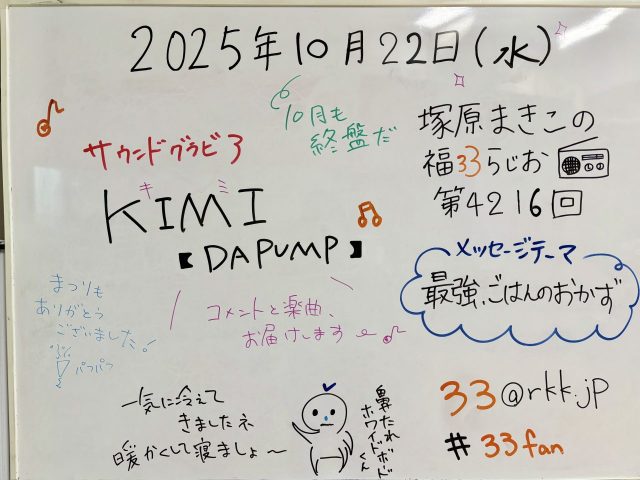 2025年10月22日(水)
10月も
終盤だ
塚原まきこの
福33らじお
第4216回
サウンドグラビ3
キミ
KIMI
【DAPUMP】
メッセージテーマ
最強、ごはんのおかず
まつりも
ありがとう
ございました!
パフパフ
コメントと楽曲、
お届けします
一気に冷えて
きましたネ
暖かくして寝ましょ〜
鼻たれ
ホワイトボード
くん
33@rkk.jp
#33fan